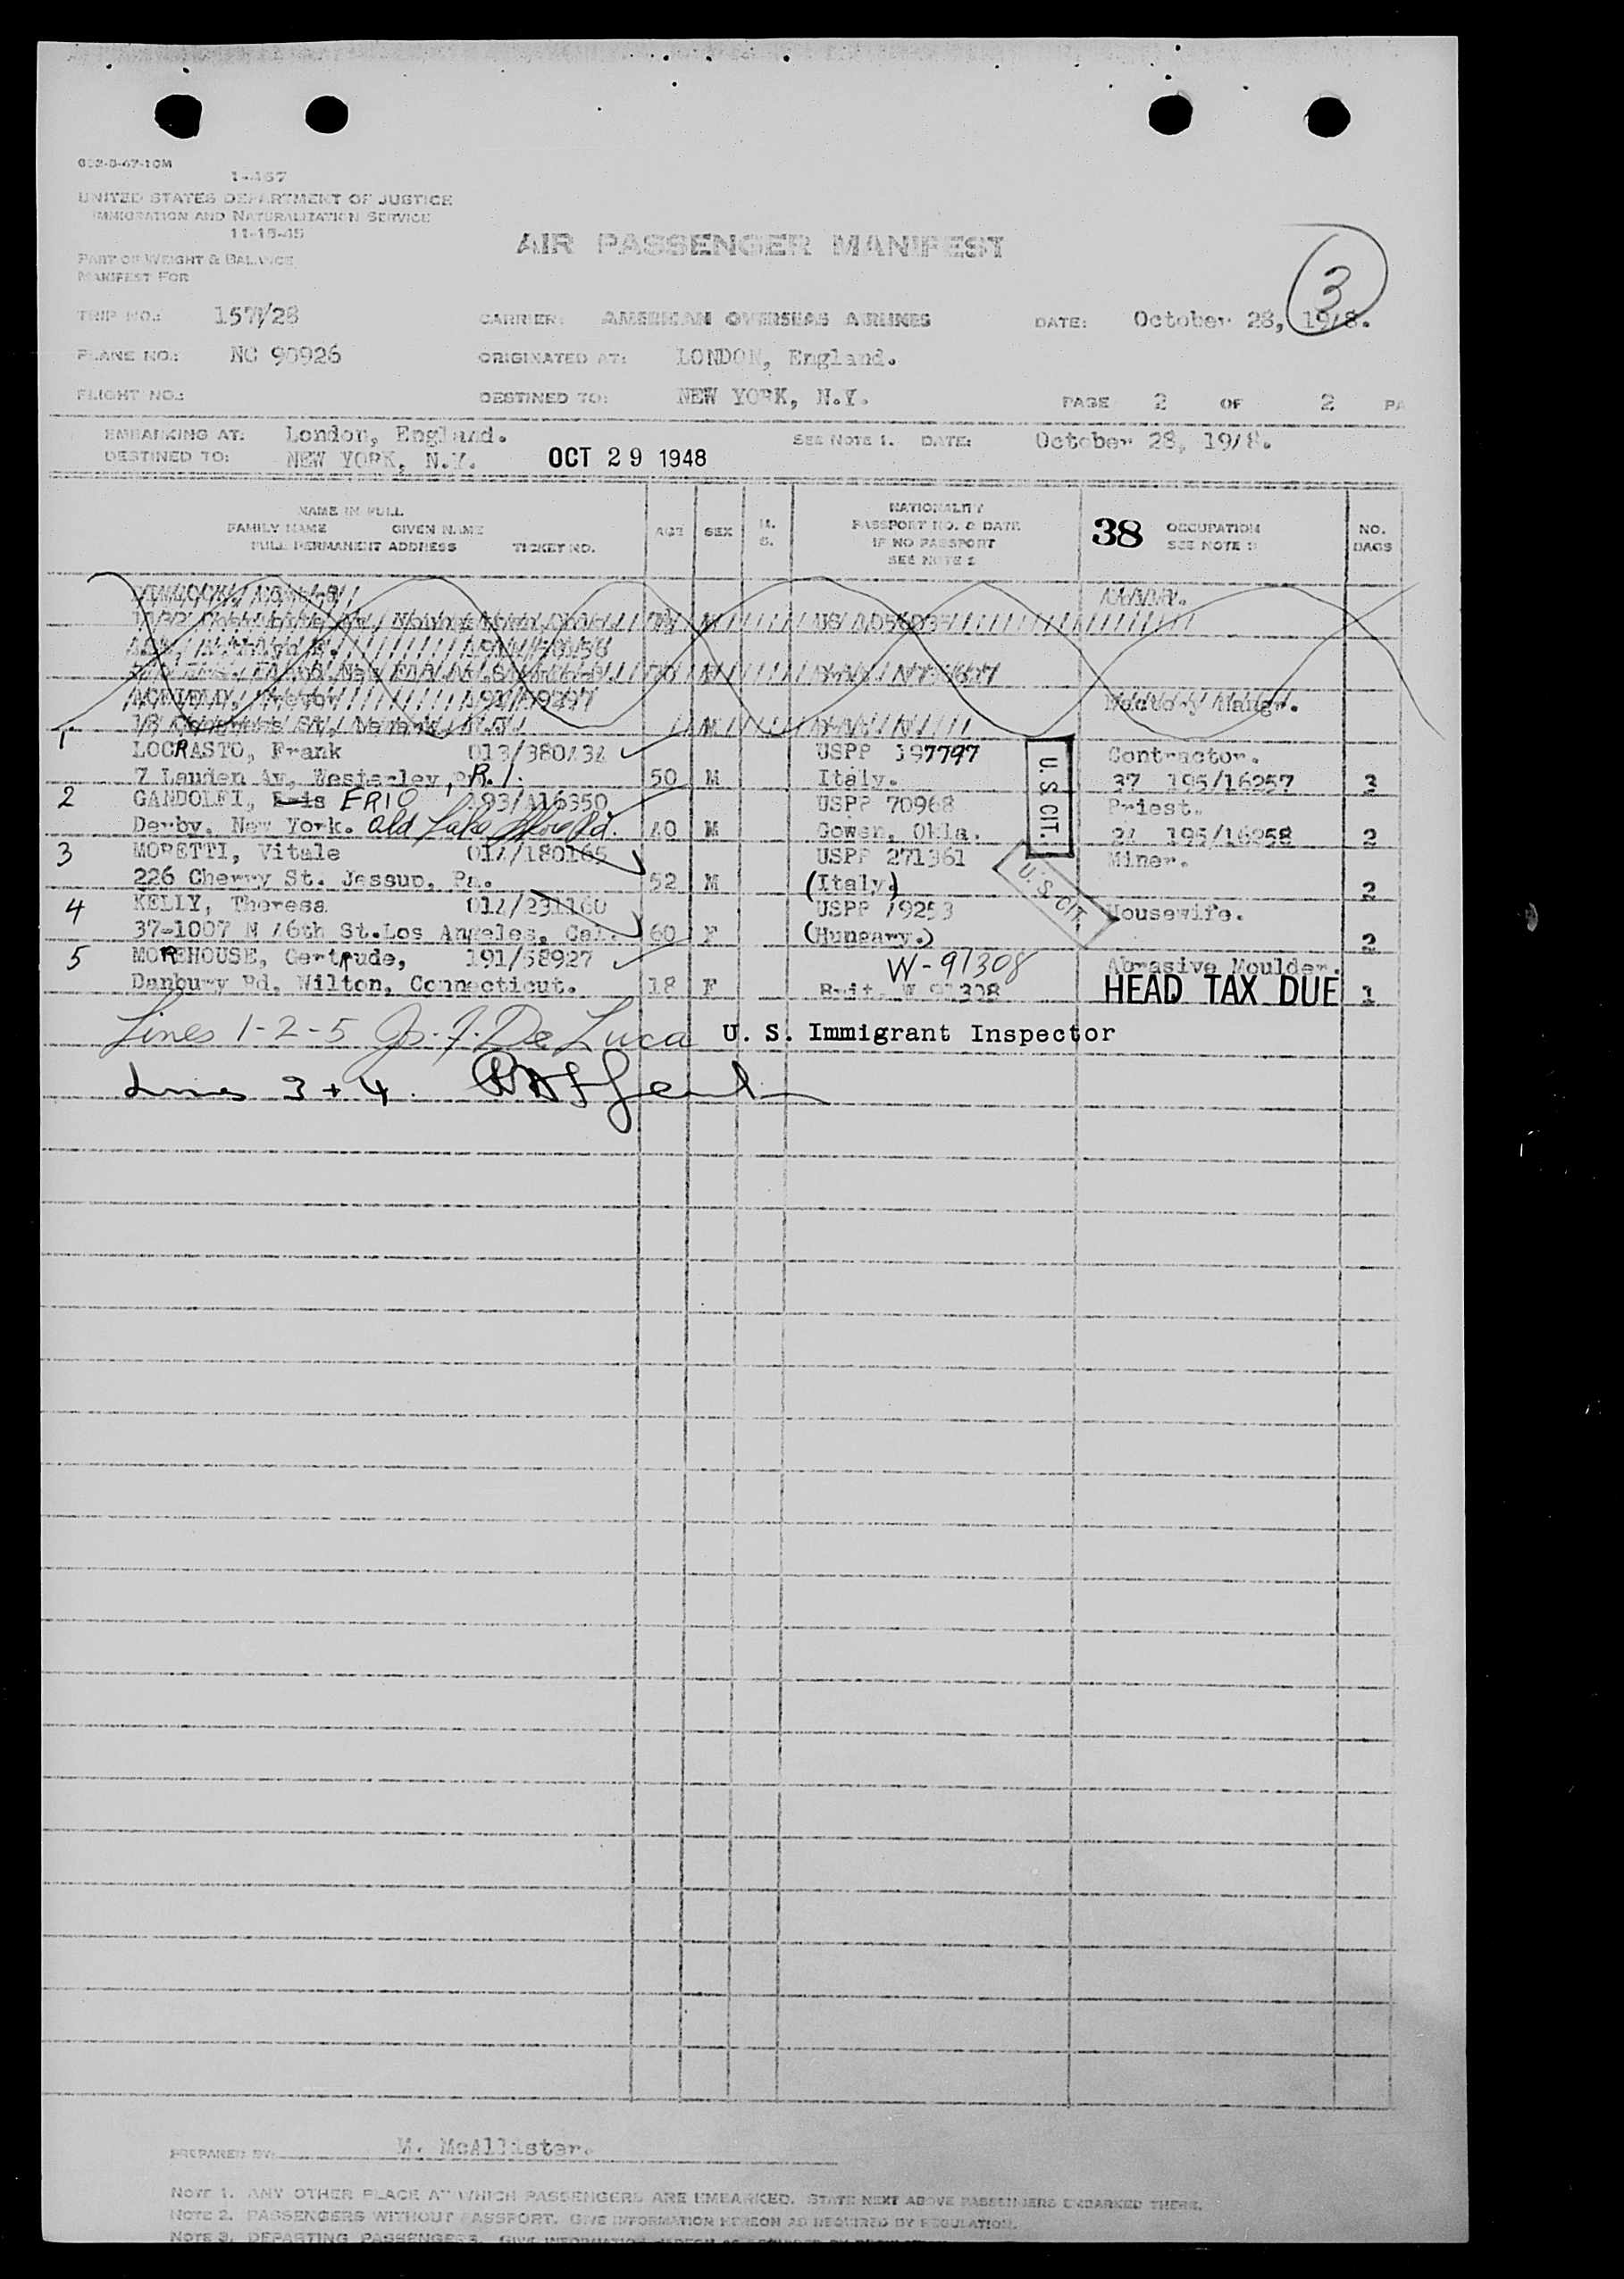 632-D-47-10M
1-467
UNITED STATES DEPARTMENT OF JUSTICE
IMMIGRATION AND NATURALIZATION SERVICE
11-15-45
AIR PASSENGER MANIFEST
3
PART OF WEIGHT & BALANCE
MANIFEST FOR
TRIP NO.: 157/28 CARRIER: AMERICAN OVERSEAS AIRLINES DATE: October 28, 1948.
PLANE NO.: NC 90926 ORIGINATED AT: LONDON, England.
FLIGHT NO.: DESTINED TO: NEW YORK, N.Y. PAGE 2 OF 2 PA
EMBARKING AT: London, England. SEE NOTE 1. DATE: October 28, 1948.
DESTINED TO: NEW YORK, N.Y. OCT 29 1948
NAME IN FULL
FAMILY NAME GIVEN NAME
FULL PERMANENT ADDRESS TICKET NO.
AGE SEX M. S.
NATIONALITY
PASSPORT NO. & DATE
IF NO PASSPORT
SEE NOTE 2
38 OCCUPATION
SEE NOTE
NO. BAGS
1 LOCRASTO, Frank 013/380434 USPP 197797 Contractor.
7 Lauden Av, Westerley, R.I. 50 M Italy. 37 195/16257 3
2 GANDOLFI, ERIO 193/416350 USPP 70968 Priest.
Derby, New York. Old Lake Rd. 40 M Gowen, Okla. 24 195/16258 2
3 MORETTI, Vitale 014/180165 USPP 271361 Miner.
226 Cherry St. Jessup, Pa. 52 M (Italy) 2
4 KELLY, Theresa 014/231160 USPP 49253 Housewife.
37-1007 N 46th St. Los Angeles, Cal. 60 F (Hungary.) 2
5 MOREHOUSE, Gertrude, 191/58927 W-91308 Abrasive Moulder.
Danbury Rd, Wilton, Connecticut. 18 F Brit. W 91308 HEAD TAX DUE 1
U.S. CIT.
U.S. CIT.
Lines 1-2-5 Jos. F. De Luca U. S. Immigrant Inspector
Lines 3+4.
PREPARED BY: M. McAllister.
NOTE 1. ANY OTHER PLACE AT WHICH PASSENGERS ARE EMBARKED. STATE NEXT ABOVE PASSENGERS EMBARKED THERE.
NOTE 2. PASSENGERS WITHOUT PASSPORT. GIVE INFORMATION HEREON AS REQUIRED BY REGULATION.
NOTE 3. DEPARTING PASSENGERS. GIVE INFORMATION